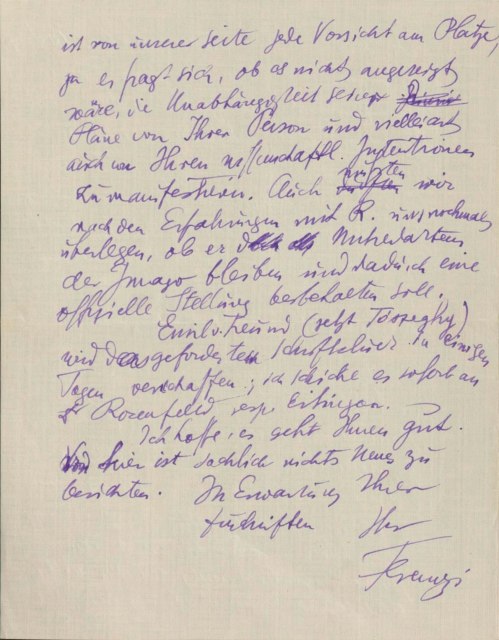 ist von unserer Seite jede Vorsicht am Platze,
ja es fragt sich, ob es nicht angezeigt
wäre, die Unabhängigkeit seiner
Pläne von Ihrer Person und vielleicht
auch von Ihren wissenschaftl. Intentionen
zu manifestieren. Auch müssten wir
nach den Erfahrungen mit R. uns nochmals
überlegen, ob er Mitredakteur
der Imago bleiben und dadurch eine
offizielle Stellung beibehalten soll.
Freund (jetzt Tószeghy)
wird das geforderte Schriftstück in einigen
Tagen verschaffen; ich schicke es sofort an
Rozenfeld, resp. Eitingon.
Ich hoffe, es geht Ihnen gut.
Von hier ist sachlich nichts Neues zu
berichten. In Erwartung Ihrer
Zuschriften Ihr
Ferenczi